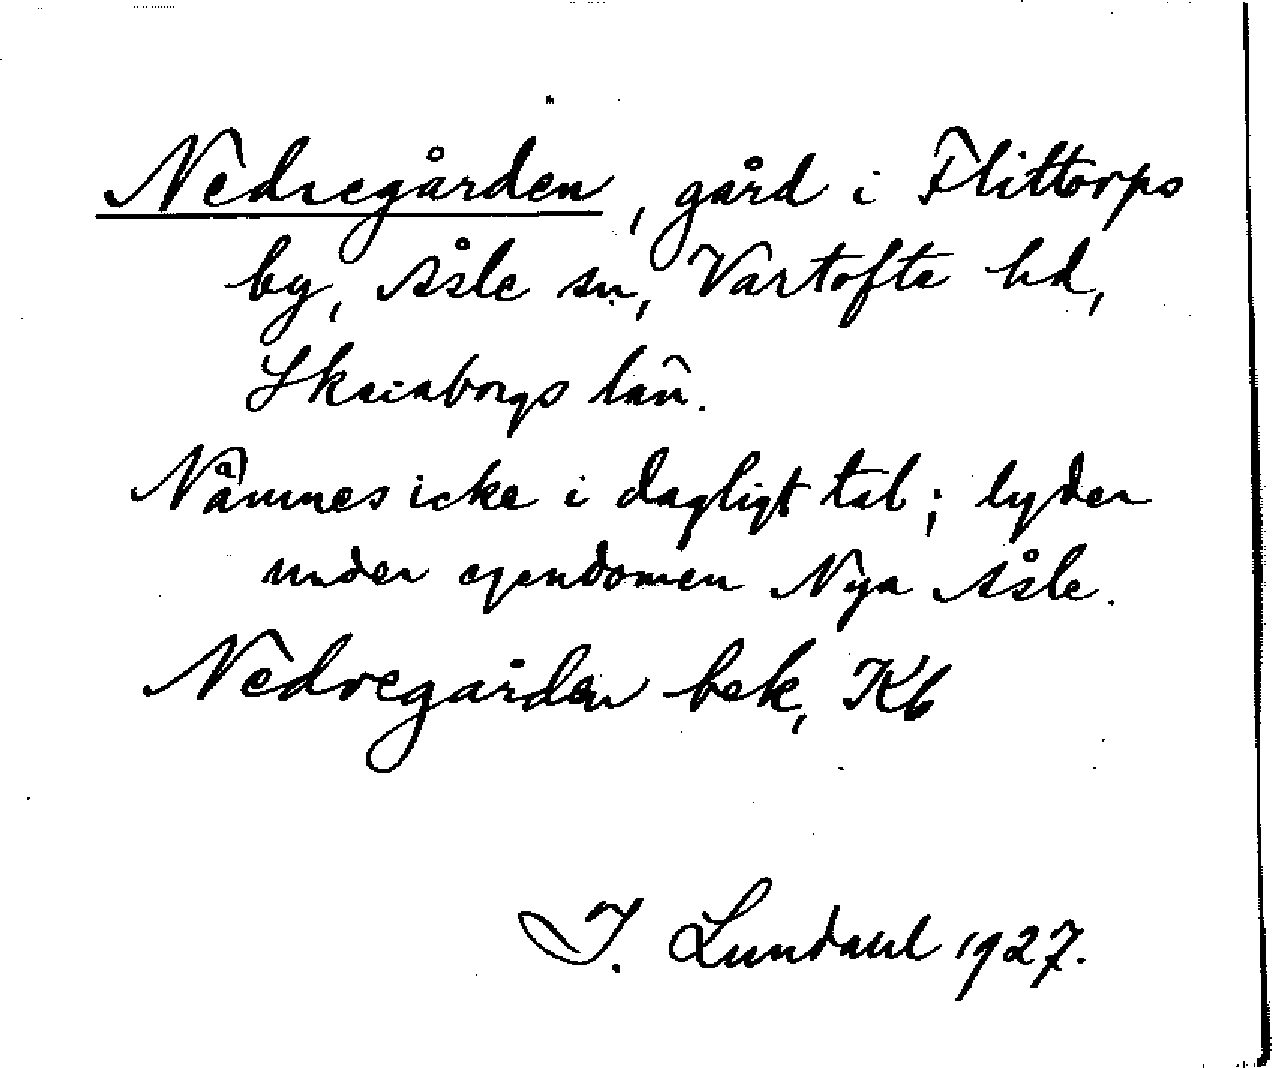 Nedregården, gård i Flittorps
by, Åsle sn, Vartofta hd,
Skaraborgs län.
Nämnes icke i dagligt tal; lyder
under egendomen Nya Åsle.
Nedregården bek, Kb
I. Lundahl 1927.